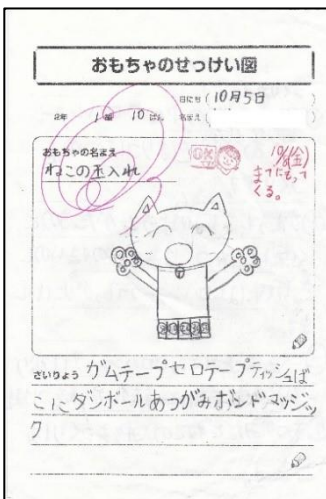 おもちゃのせっけい図
日にち（10月5日）
2年 1組 10ばん 名まえ（ ）
おもちゃの名まえ
ねこの玉入れ
10/8(金)
までにもって
くる。
ざいりょう ガムテープセロテープティッシュば
こにダンボールあつがみボンドマッジッ
ク